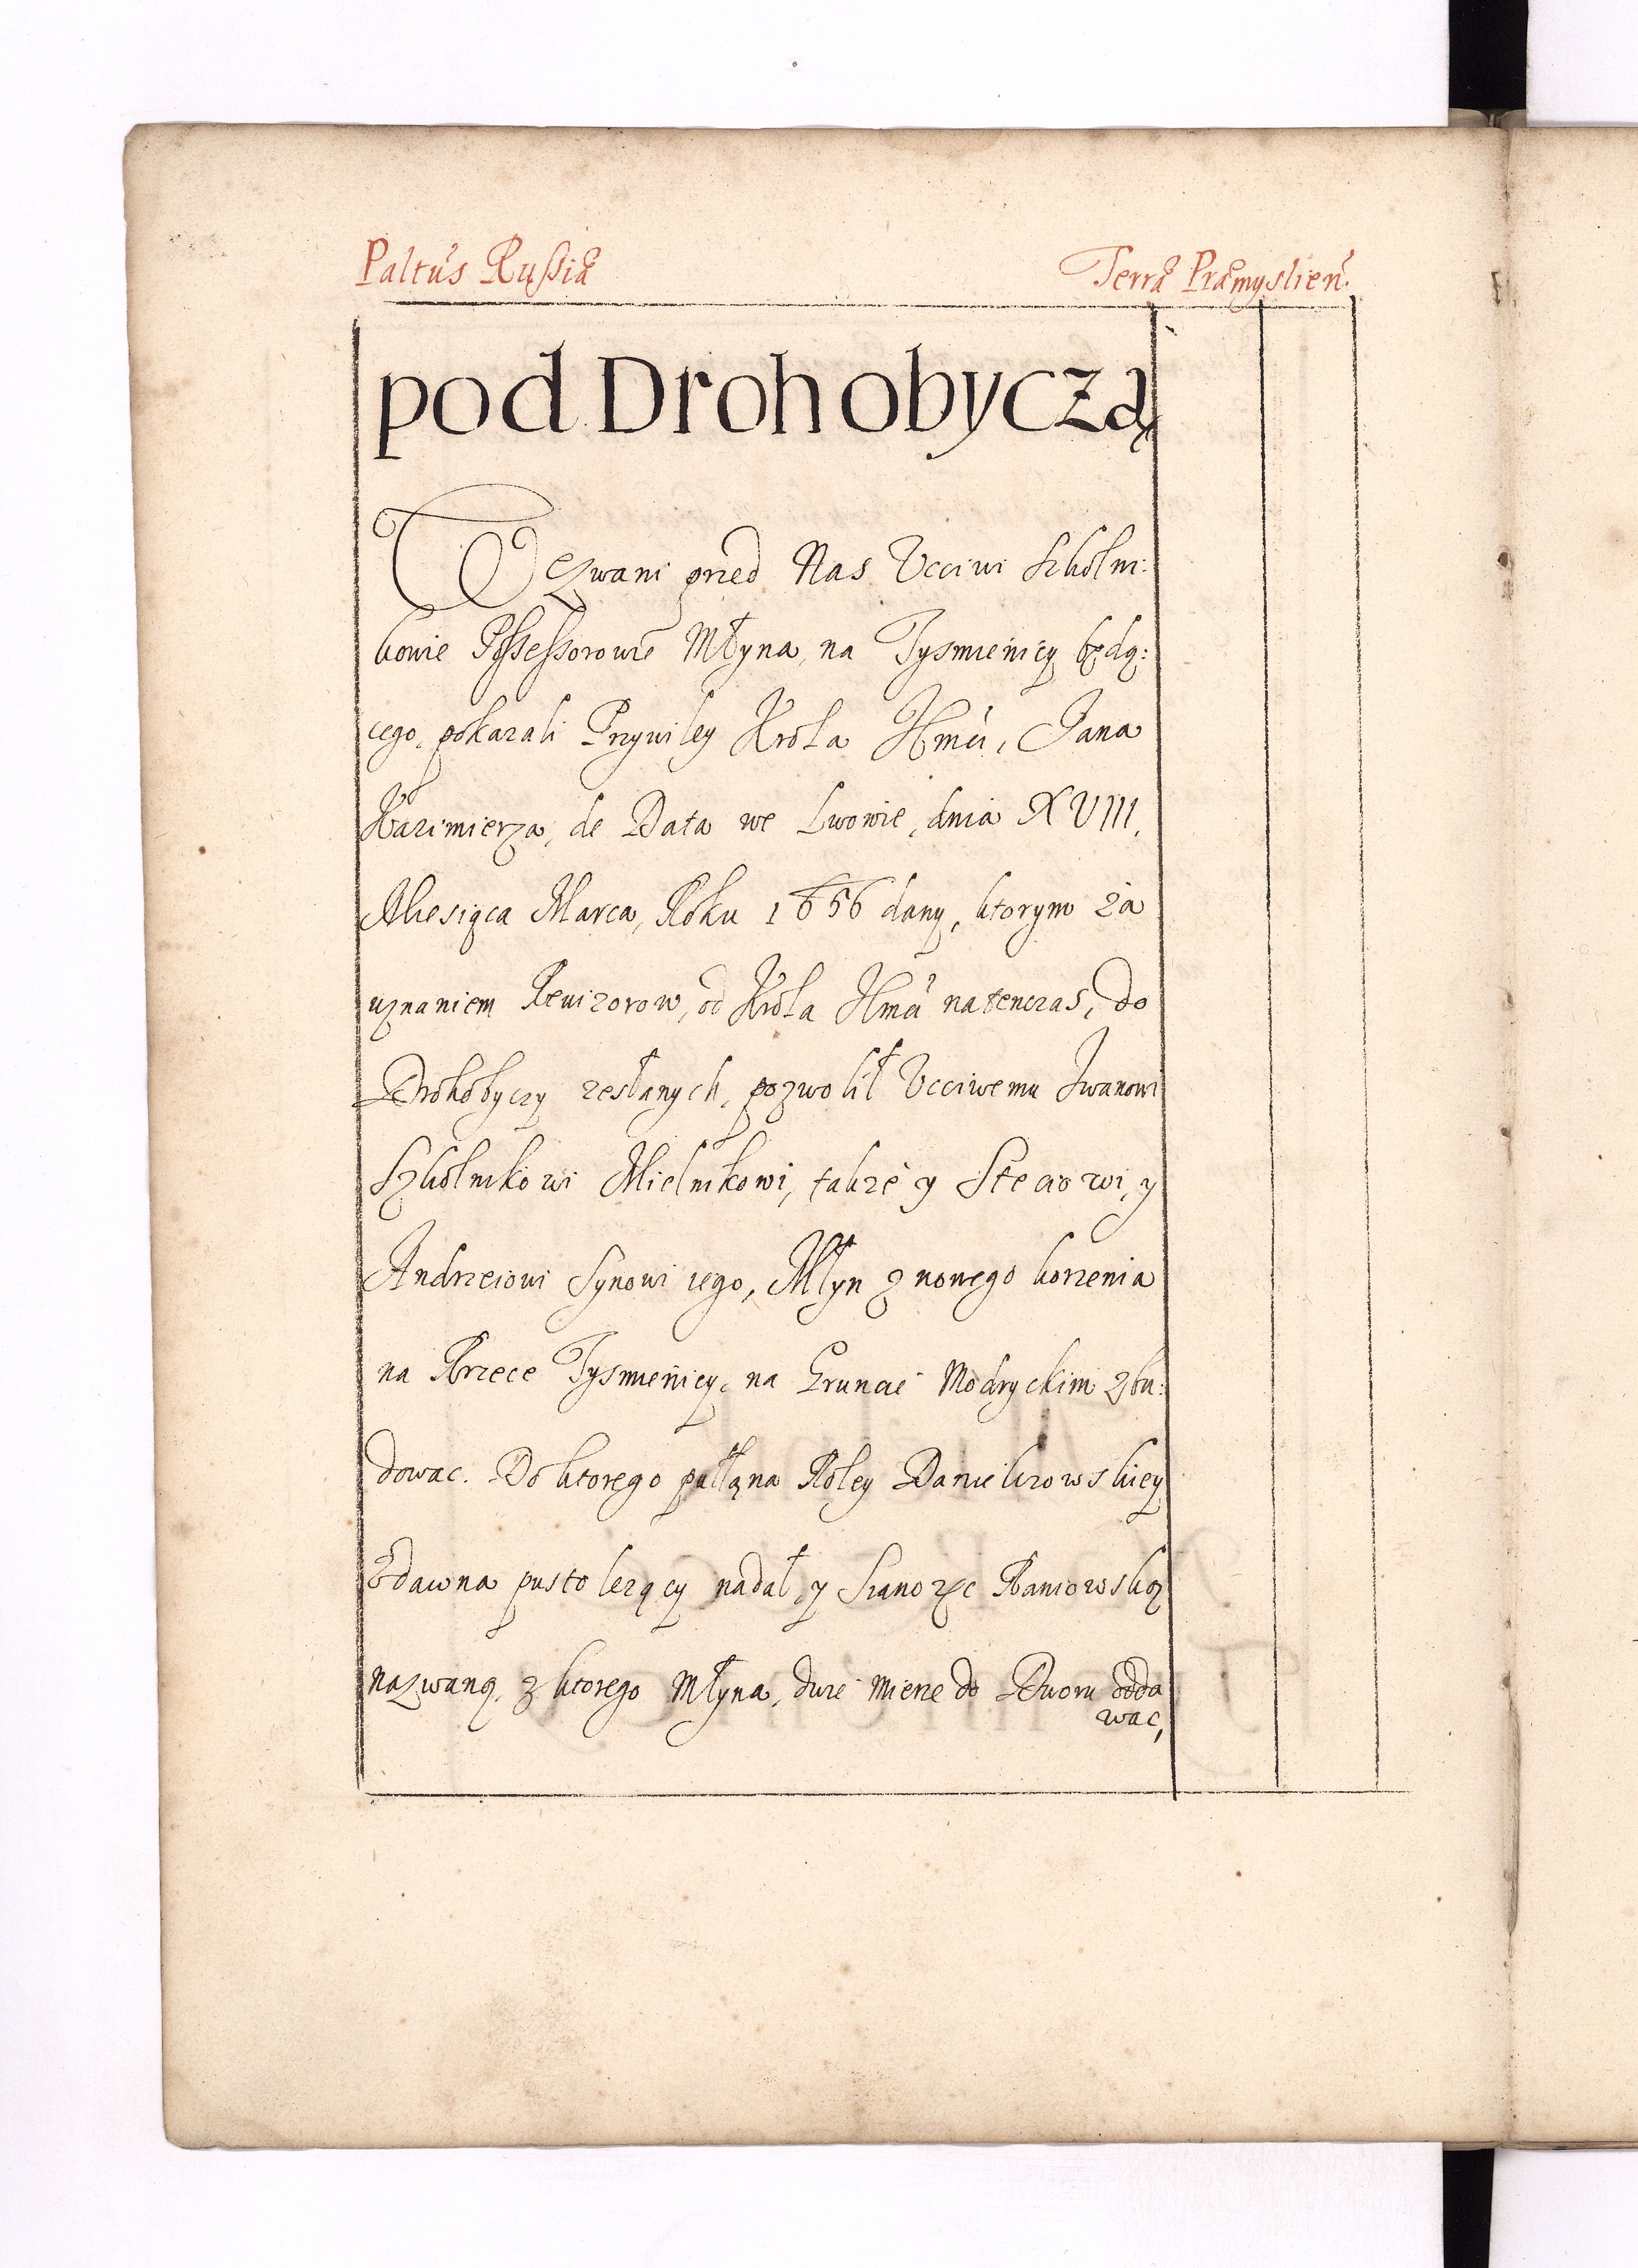 Paltus Russiæ
Terræ Præmyslien.
pod Drohobyczą
Wezwani przed Nas Ucciwi Szkolni:
kowie Possessorowie Młyna, na Tysmienicy będą:
cego, pokazali Przywiley Krola JKmći, Jana
Kazimierza, de Data we Lwowie, dnia XVIII.
Miesiąca Marca, Roku 1656 dany, ktorym za
uznaniem Rewizorow, od Krola JKmći natenczas, do
Drohobyczy zesłanych, pozwolił Ucciwemu Iwanowi
Szkolnikowi Mielnikowi, także y Steciowi, y
Andrzeiowi Synowi iego, Młyn z nowego korzenia
na Rzece Tysmienicy, na Gruncie Modryckim zbu:
dowac. Do ktorego pułłana Roley Danielczowskiey
zdawna pusto lezący nadał, y Sianozęc Raniowską
nazwaną, z ktorego Młyna, dwie mierze do Dworu odda
wac,